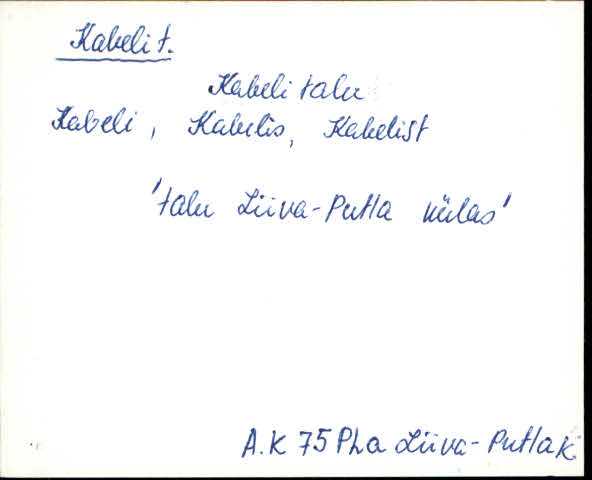 Kabeli t.
Kabeli talu
Kabeli, Kabelis, Kabelist
'talu Liiva-Putla külas'
A.K 75 Pha Liiva-Putla k.